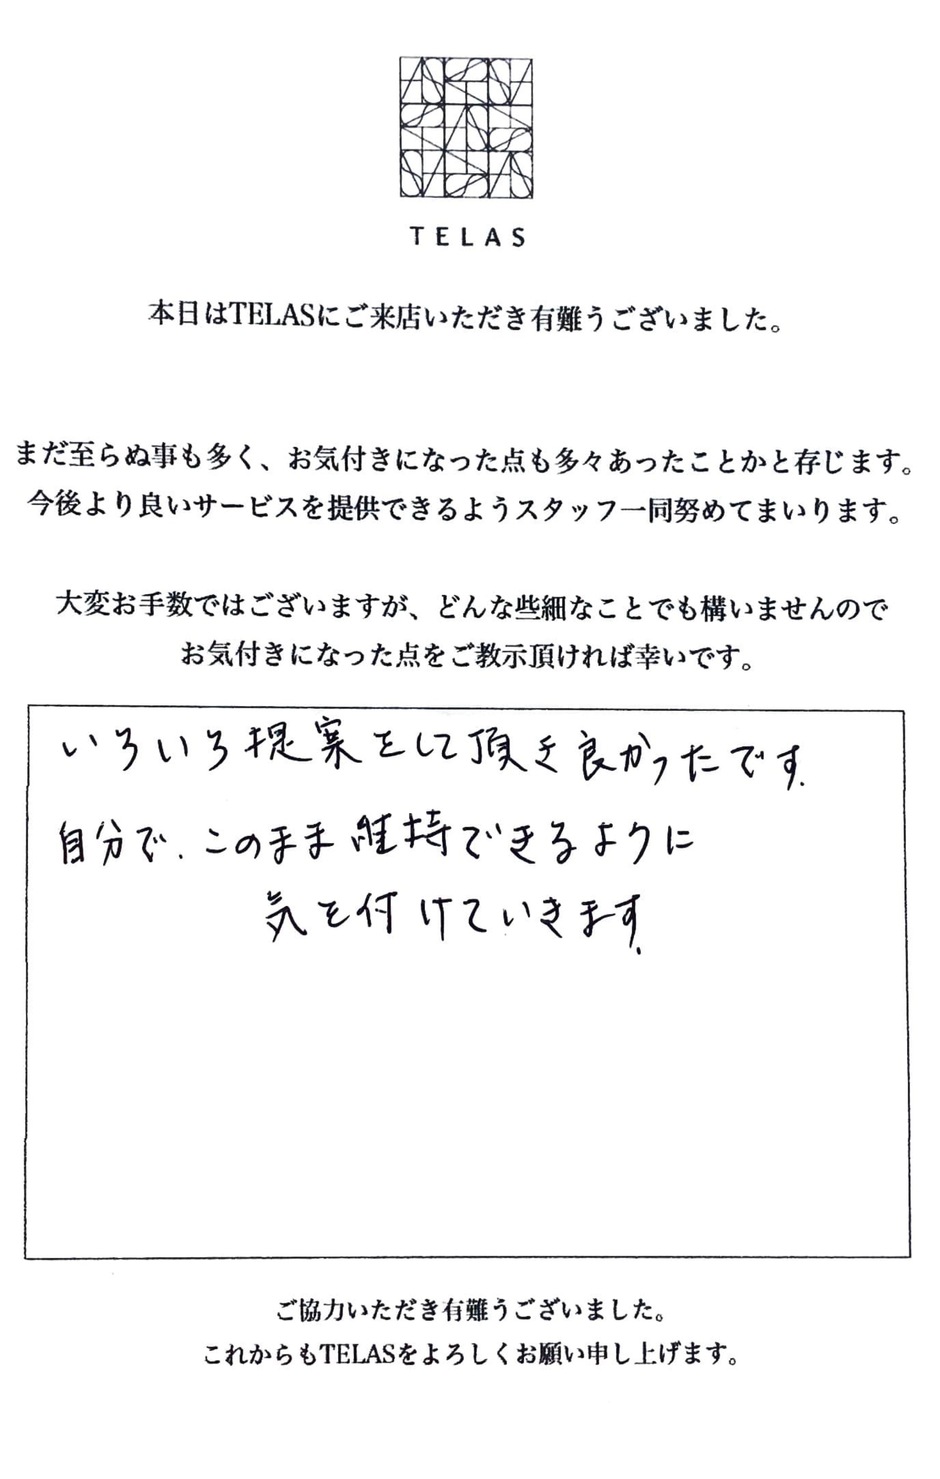 TELAS
本日はTELASにご来店いただき有難うございました。
まだ至らぬ事も多く、お気付きになった点も多々あったことかと存じます。
今後より良いサービスを提供できるようスタッフ一同努めてまいります。
大変お手数ではございますが、どんな些細なことでも構いませんので
お気付きになった点をご教示頂ければ幸いです。
いろいろ提案をして頂き良かったです.
自分で.このまま維持できるように
気を付けていきます.
ご協力いただき有難うございました。
これからもTELASをよろしくお願い申し上げます。